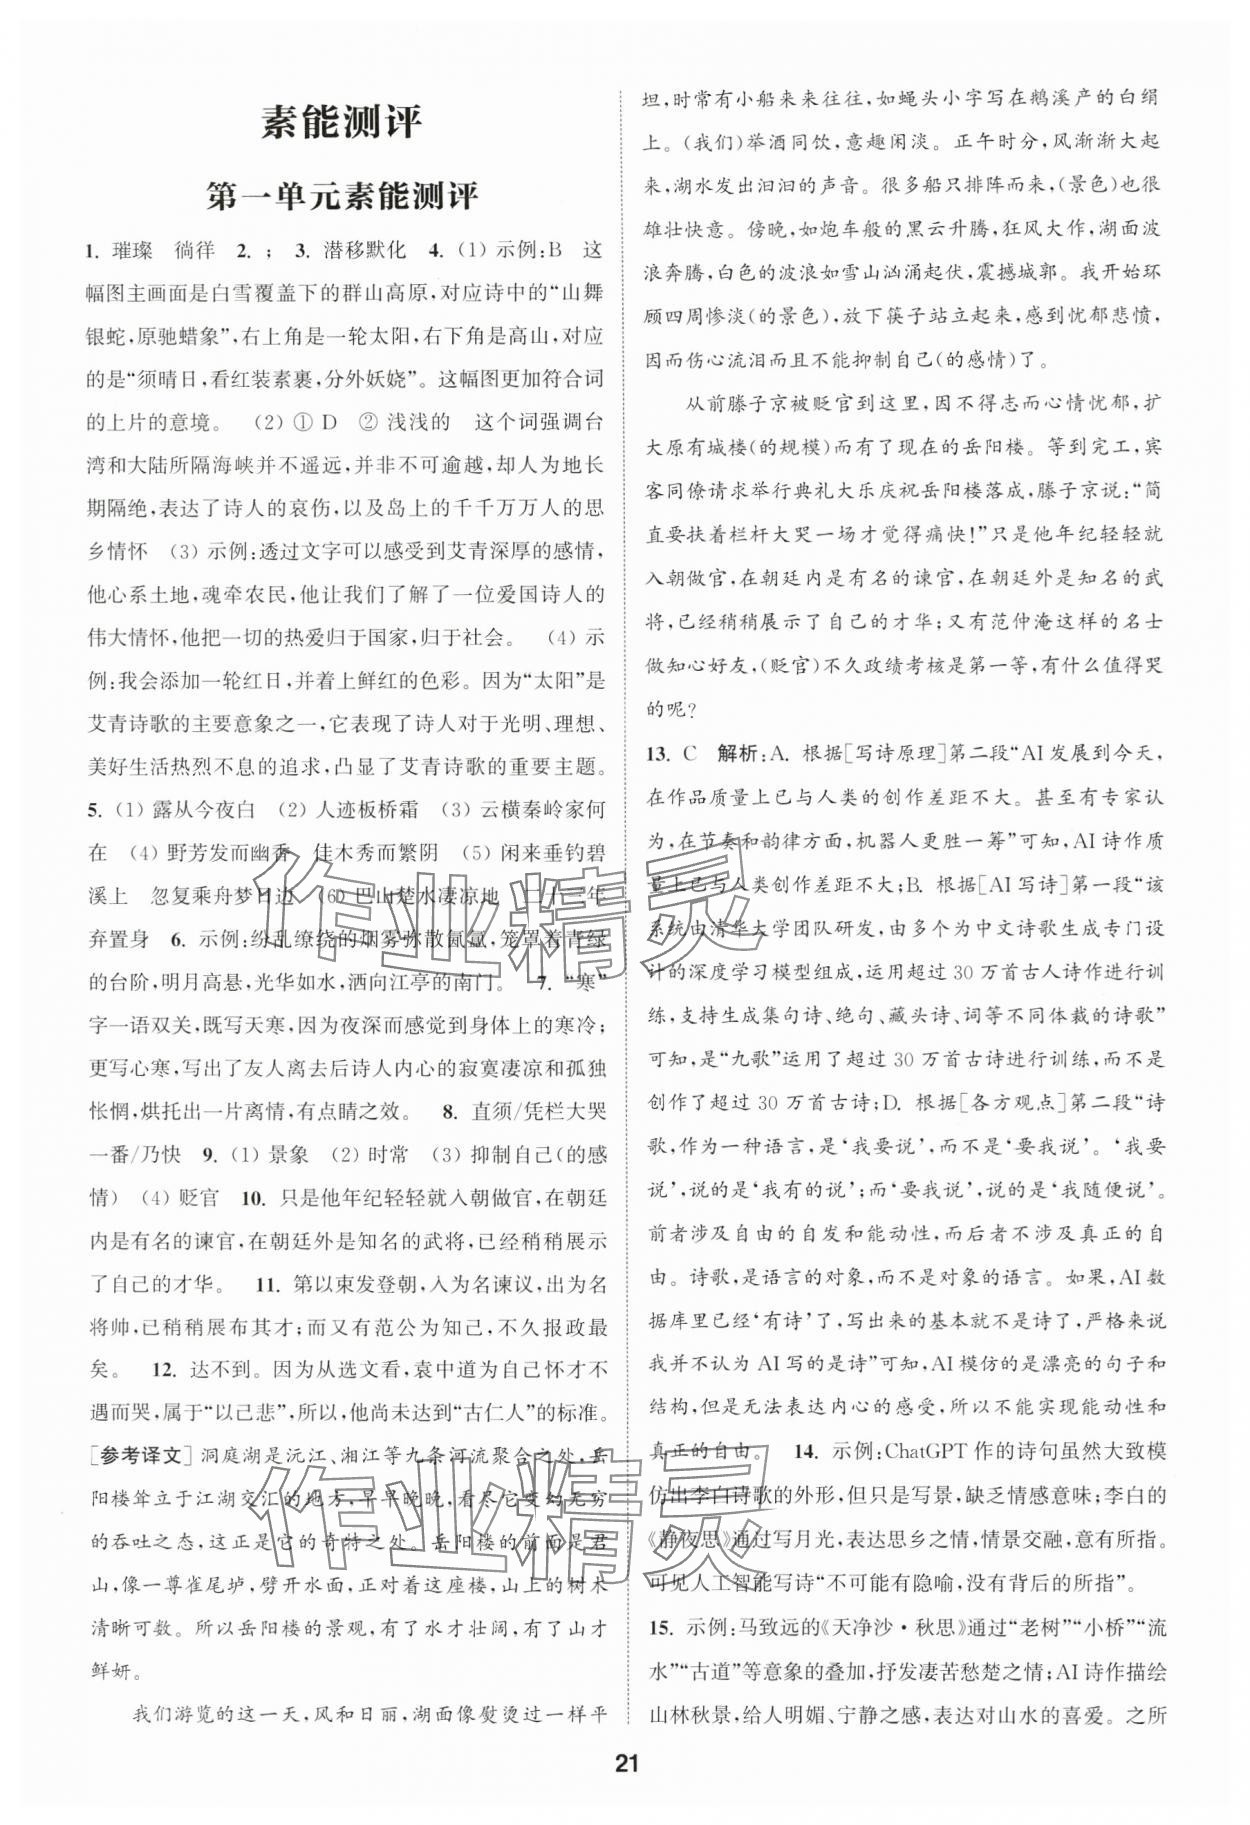 素能测评
第一单元素能测评
1. 璀璨　徜徉　2. ；　3. 潜移默化　4. (1) 示例:B　这
幅图主画面是白雪覆盖下的群山高原,对应诗中的“山舞
银蛇,原驰蜡象”,右上角是一轮太阳,右下角是高山,对应
的是“须晴日,看红装素裹,分外妖娆”。这幅图更加符合词
的上片的意境。　(2) ① D　② 浅浅的　这个词强调台
湾和大陆所隔海峡并不遥远,并非不可逾越,却人为地长
期隔绝,表达了诗人的哀伤,以及岛上的千千万万人的思
乡情怀　(3) 示例:透过文字可以感受到艾青深厚的感情,
他心系土地,魂牵农民,他让我们了解了一位爱国诗人的
伟大情怀,他把一切的热爱归于国家,归于社会。　(4) 示
例:我会添加一轮红日,并着上鲜红的色彩。因为“太阳”是
艾青诗歌的主要意象之一,它表现了诗人对于光明、理想、
美好生活热烈不息的追求,凸显了艾青诗歌的重要主题。
5. (1) 露从今夜白　(2) 人迹板桥霜　(3) 云横秦岭家何
在　(4) 野芳发而幽香　佳木秀而繁阴　(5) 闲来垂钓碧
溪上　忽复乘舟梦日边　(6) 巴山楚水凄凉地　二十三年
弃置身　6. 示例:纷乱缭绕的烟雾弥散氤氲,笼罩着青绿
的台阶,明月高悬,光华如水,洒向江亭的南门。　7. “寒”
字一语双关,既写天寒,因为夜深而感觉到身体上的寒冷;
更写心寒,写出了友人离去后诗人内心的寂寞凄凉和孤独
怅惘,烘托出一片离情,有点睛之效。　8. 直须/凭栏大哭
一番/乃快　9. (1) 景象　(2) 时常　(3) 抑制自己(的感
情)　(4) 贬官　10. 只是他年纪轻轻就入朝做官,在朝廷
内是有名的谏官,在朝廷外是知名的武将,已经稍稍展示
了自己的才华。　11. 第以束发登朝,入为名谏议,出为名
将帅,已稍稍展布其才;而又有范公为知己,不久报政最
矣。　12. 达不到。因为从选文看,袁中道为自己怀才不
遇而哭,属于“以己悲”,所以,他尚未达到“古仁人”的标准。
[参考译文] 洞庭湖是沅江、湘江等九条河流聚合之处,岳
阳楼耸立于江湖交汇的地方,早早晚晚,看尽它变幻无穷
的吞吐之态,这正是它的奇特之处。岳阳楼的前面是君
山,像一尊雀尾垆,劈开水面,正对着这座楼,山上的树木
清晰可数。所以岳阳楼的景观,有了水才壮阔,有了山才
鲜妍。
我们游览的这一天,风和日丽,湖面像熨烫过一样平
坦,时常有小船来来往往,如蝇头小字写在鹅溪产的白绢
上。(我们)举酒同饮,意趣闲淡。正午时分,风渐渐大起
来,湖水发出汩汩的声音。很多船只排阵而来,(景色)也很
雄壮快意。傍晚,如炮车般的黑云升腾,狂风大作,湖面波
浪奔腾,白色的波浪如雪山汹涌起伏,震撼城郭。我开始环
顾四周惨淡(的景色),放下筷子站立起来,感到忧郁悲愤,
因而伤心流泪而且不能抑制自己(的感情)了。
从前滕子京被贬官到这里,因不得志而心情忧郁,扩
大原有城楼(的规模)而有了现在的岳阳楼。等到完工,宾
客同僚请求举行典礼大乐庆祝岳阳楼落成,滕子京说:“简
直要扶着栏杆大哭一场才觉得痛快!”只是他年纪轻轻就
入朝做官,在朝廷内是有名的谏官,在朝廷外是知名的武
将,已经稍稍展示了自己的才华;又有范仲淹这样的名士
做知心好友,(贬官)不久政绩考核是第一等,有什么值得哭
的呢?
13. C　解析:A. 根据[写诗原理]第二段“AI发展到今天,
在作品质量上已与人类的创作差距不大。甚至有专家认
为,在节奏和韵律方面,机器人更胜一筹”可知,AI诗作质
量上已与人类创作差距不大;B. 根据[AI写诗]第一段“该
系统由清华大学团队研发,由多个为中文诗歌生成专门设
计的深度学习模型组成,运用超过30万首古人诗作进行训
练,支持生成集句诗、绝句、藏头诗、词等不同体裁的诗歌”
可知,是“九歌”运用了超过30万首古诗进行训练,而不是
创作了超过30万首古诗;D. 根据[各方观点]第二段“诗
歌,作为一种语言,是‘我要说’,而不是‘要我说’。‘我要
说’,说的是‘我有的说’;而‘要我说’,说的是‘我随便说’。
前者涉及自由的自发和能动性,而后者不涉及真正的自
由。诗歌,是语言的对象,而不是对象的语言。如果,AI数
据库里已经‘有诗’了,写出来的基本就不是诗了,严格来说
我并不认为AI写的是诗”可知,AI模仿的是漂亮的句子和
结构,但是无法表达内心的感受,所以不能实现能动性和
真正的自由。　14. 示例:ChatGPT作的诗句虽然大致模
仿出李白诗歌的外形,但只是写景,缺乏情感意味;李白的
《静夜思》通过写月光,表达思乡之情,情景交融,意有所指。
可见人工智能写诗“不可能有隐喻,没有背后的所指”。
15. 示例:马致远的《天净沙·秋思》通过“老树”“小桥”“流
水”“古道”等意象的叠加,抒发凄苦愁楚之情;AI诗作描绘
山林秋景,给人明媚、宁静之感,表达对山水的喜爱。之所
21
作业精灵
作业精灵